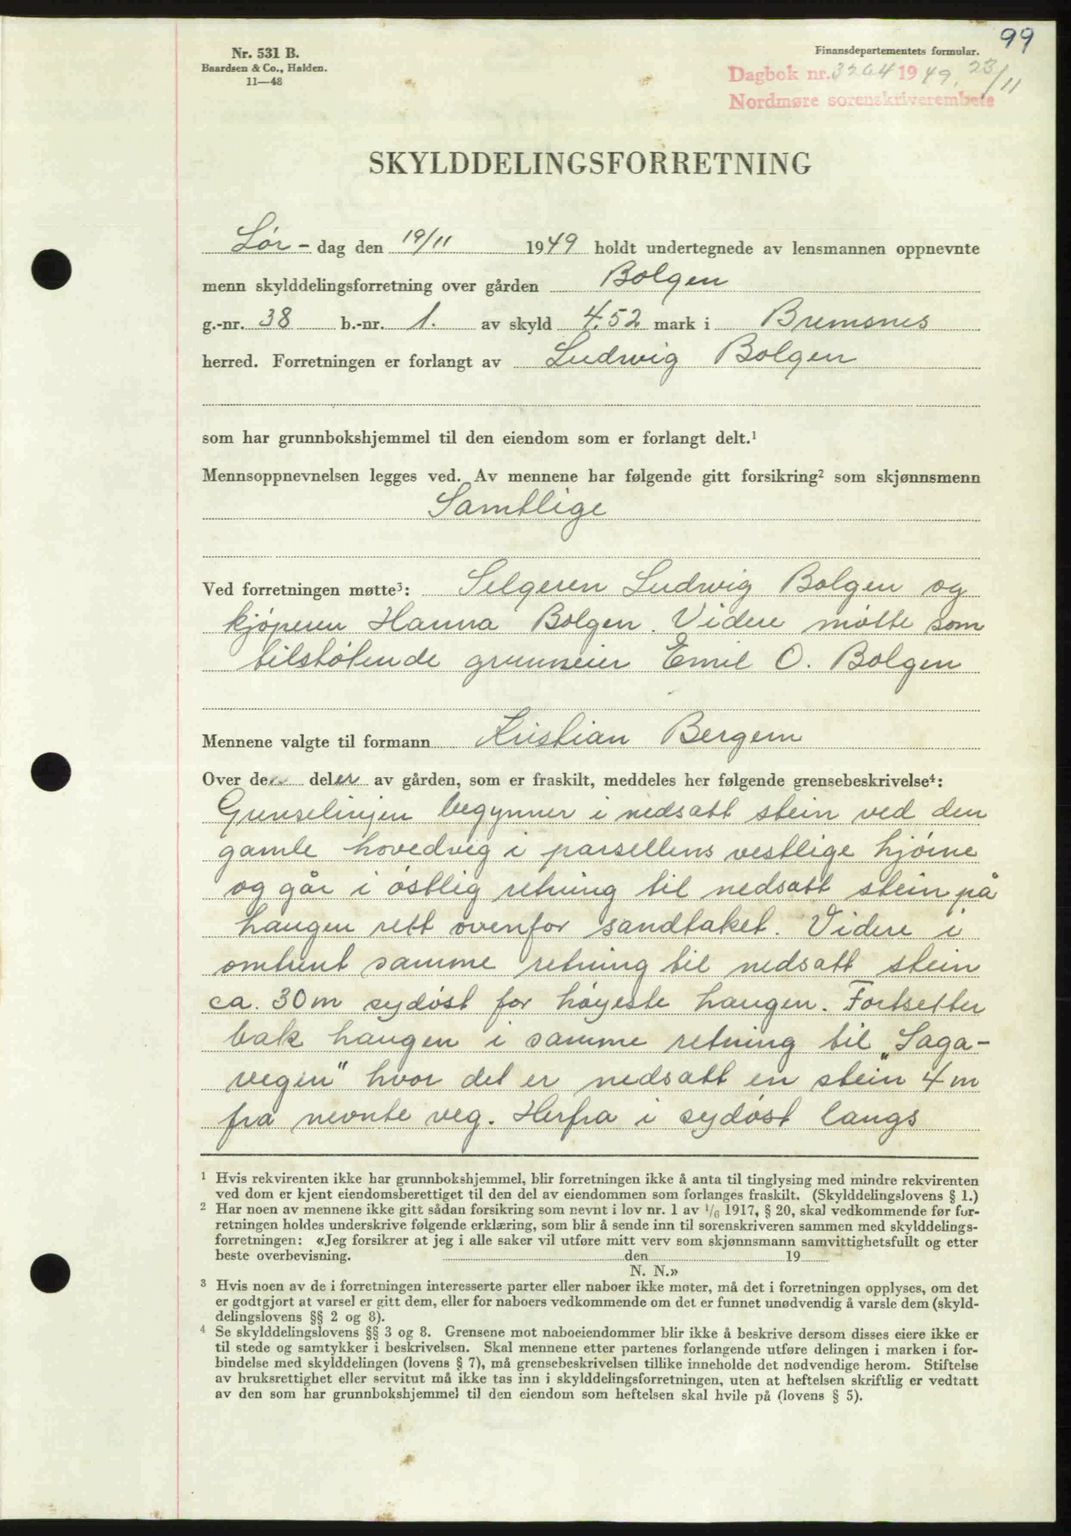 99
Nr. 531 B.
Baardsen & Co., Halden.
11—48
Finansdepartementets formular.
Dagbok nr. 3264 1949, 23/11
Nordmøre sorenskriverembete
SKYLDDELINGSFORRETNING
Lør- dag den 19/11 1949 holdt undertegnede av lensmannen oppnevnte
menn skylddelingsforretning over gården Bolgen
g.-nr. 38 b.-nr. 1. av skyld 4.52 mark i Bremsnes
herred. Forretningen er forlangt av Ludwig Bolgen
som har grunnbokshjemmel til den eiendom som er forlangt delt.¹
Mennsoppnevnelsen legges ved. Av mennene har følgende gitt forsikring² som skjønnsmenn
Samtlige
Ved forretningen møtte³: Selgeren Ludwig Bolgen og
kjøperen Hanna Bolgen. Videre møtte som
tilstøtende grunneier Emil O. Bolgen
Mennene valgte til formann Kristian Bergem
Over de deler av gården, som er fraskilt, meddeles her følgende grensebeskrivelse⁴:
Grenselinjen begynner i nedsatt stein ved den
gamle hovedveg i parsellens vestlige hjørne
og går i østlig retning til nedsatt stein på
haugen rett ovenfor sandtaket. Videre i
omtrent samme retning til nedsatt stein
ca. 30 m sydøst for høyeste haugen. Fortsetter
bak haugen i samme retning til "Saga-
vegen" hvor det er nedsatt en stein 4 m
fra nevnte veg. Herfra i sydøst langs
¹ Hvis rekvirenten ikke har grunnbokshjemmel, blir forretningen ikke å anta til tinglysing med mindre rekvirenten
ved dom er kjent eiendomsberettiget til den del av eiendommen som forlanges fraskilt. (Skylddelingslovens § 1.)
² Har noen av mennene ikke gitt sådan forsikring som nevnt i lov nr. 1 av 1/6 1917, § 20, skal vedkommende før for-
retningen holdes underskrive følgende erklæring, som blir å sende inn til sorenskriveren sammen med skylddelings-
forretningen: «Jeg forsikrer at jeg i alle saker vil utføre mitt verv som skjønnsmann samvittighetsfullt og etter
beste overbevisning. den 19
N. N.»
³ Hvis noen av de i forretningen interesserte parter eller naboer ikke møter, må det i forretningen opplyses, om det
er godtgjort at varsel er gitt dem, eller for naboers vedkommende om det er funnet unødvendig å varsle dem (skyld-
delingslovens §§ 2 og 8).
⁴ Se skylddelingslovens §§ 3 og 8. Grensene mot naboeiendommer blir ikke å beskrive dersom disses eiere ikke er
til stede og samtykker i beskrivelsen. Skal mennene etter partenes forlangende utføre delingen i marken i for-
bindelse med skylddelingen (lovens § 7), må grensebeskrivelsen tillike inneholde det nødvendige herom. Stiftelse
av bruksrettighet eller servitut må ikke tas inn i skylddelingsforretningen, uten at heftelsen skriftlig er vedtatt
av den som har grunnbokshjemmel til den eiendom som heftelsen skal hvile på (lovens § 5).